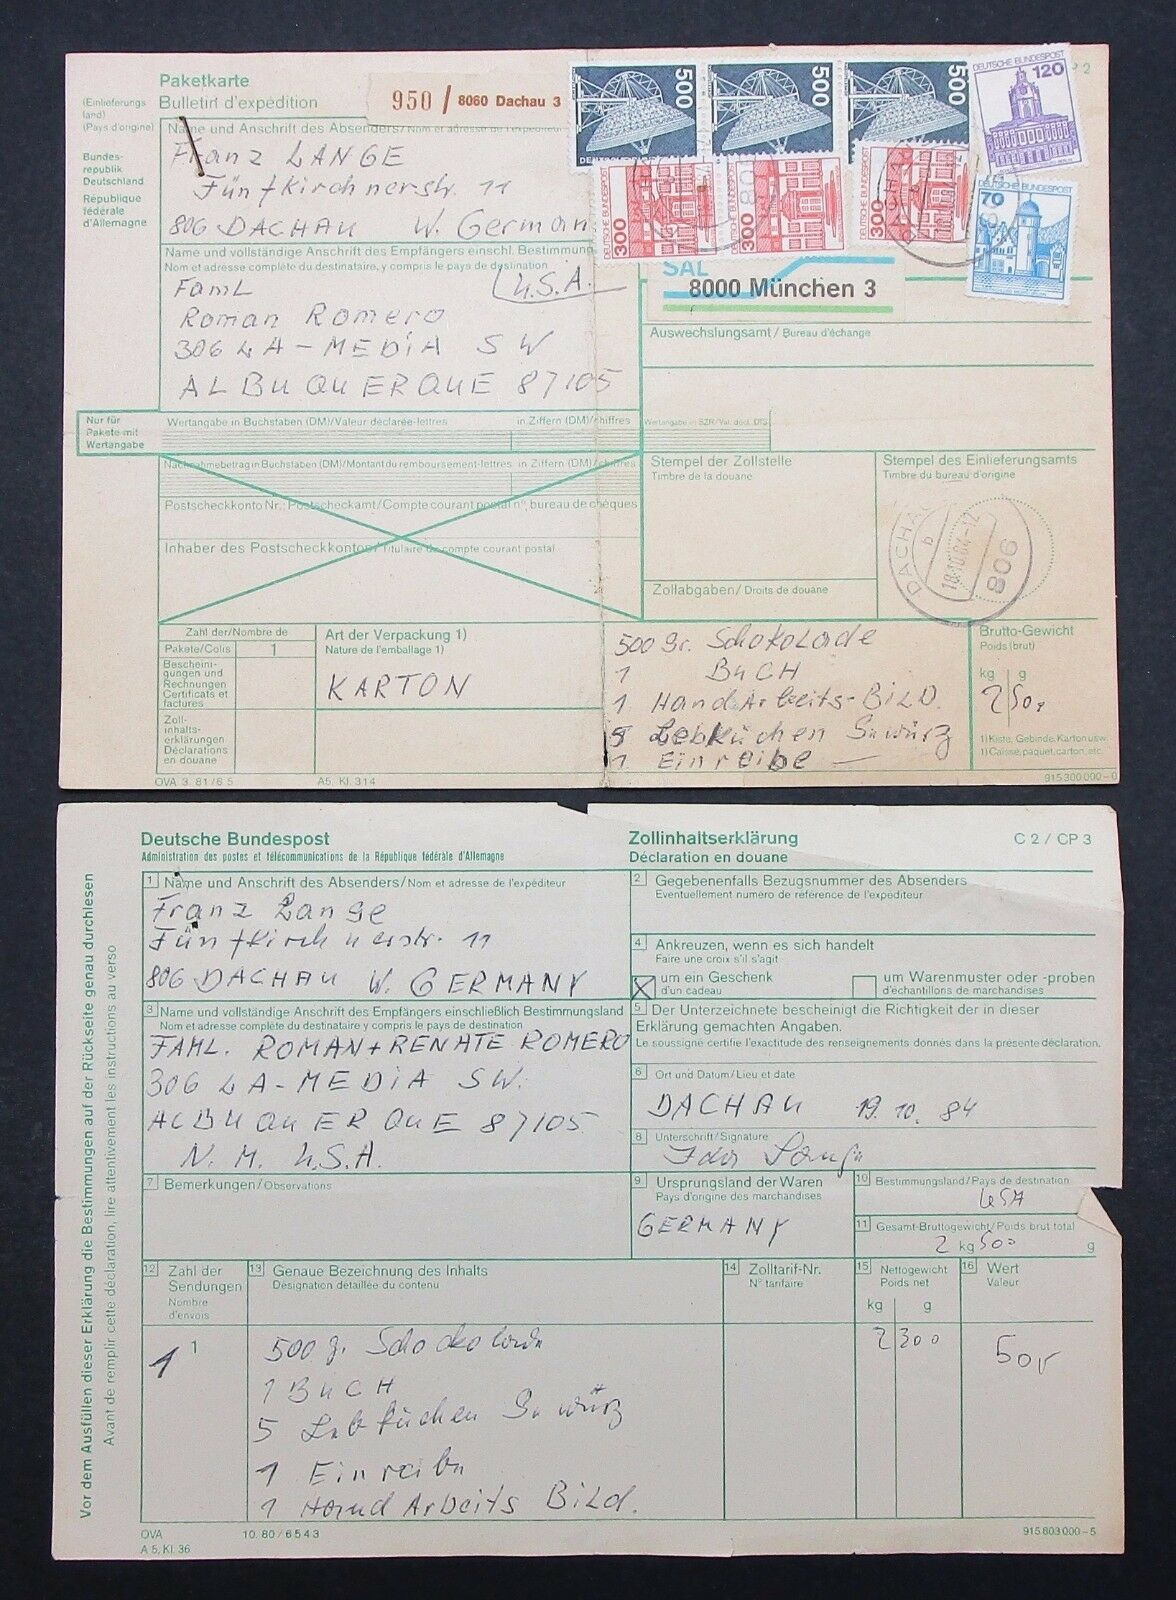 Paketkarte
Bulletin d'expédition
950 / 8060 Dachau 3
P 2
(Einlieferungs-
land)
(Pays d'origine)
Bundes-
republik
Deutschland
République
fédérale
d'Allemagne
500
500
500
DEUTSCHE BUNDESPOST
120
DEUTSCHE BUNDESPOST
70
DEUTSCHE BUNDESPOST
300
DEUTSCHE BUNDESPOST
300
DEUTSCHE BUNDESPOST
300
Name und Anschrift des Absenders/Nom et adresse de l'expéditeur
Franz LANGE
Fünfkirchnerstr. 11
806 DACHAU W. German
Name und vollständige Anschrift des Empfängers einschl. Bestimmung
Nom et adresse complète du destinataire, y compris le pays de destination
U.S.A.
Faml
Roman Romero
306 LA-MEDiA SW
ALBUQUERQUE 87105
SAL
8000 München 3
Auswechslungsamt / Bureau d'échange
Nur für
Pakete mit
Wertangabe
Wertangabe in Buchstaben (DM)/Valeur déclarée-lettres
in Ziffern (DM)/chiffres
Wertangabe in SZR/Val. décl. DTS
Nachnahmebetrag in Buchstaben (DM)/Montant du remboursement-lettres
in Ziffern (DM)/chiffres
Postscheckkonto Nr.: Postscheckamt/Compte courant postal n°, bureau de chèques
Inhaber des Postscheckkontos/Titulaire du compte courant postal
Stempel der Zollstelle
Timbre de la douane
Stempel des Einlieferungsamts
Timbre du bureau d'origine
DACHAU
b
18.10.84-12
806
Zollabgaben/Droits de douane
Zahl der/Nombre de
Pakete/Colis
1
Bescheini-
gungen und
Rechnungen
Certificats et
factures
Zoll-
inhalts-
erklärungen
Déclarations
en douane
Art der Verpackung 1)
Nature de l'emballage 1)
KARTON
500 gr. Schokolade
1 BuCH
1 HandArbeits-BiLD.
5 Lebküchen Gewürz
1 Einreibe
Brutto-Gewicht
Poids (brut)
kg g
2 500
1) Kiste, Gebinde, Karton usw.
1) Caisse, paquet, carton, etc.
OVA 3. 81/6 5
A5, Kl. 314
915 300 000-0
Deutsche Bundespost
Administration des postes et télécommunications de la République fédérale d'Allemagne
Zollinhaltserklärung
Déclaration en douane
C 2 / CP 3
Vor dem Ausfüllen dieser Erklärung die Bestimmungen auf der Rückseite genau durchlesen
Avant de remplir cette déclaration, lire attentivement les instructions au verso
1 Name und Anschrift des Absenders/Nom et adresse de l'expéditeur
Franz Lange
Fünfkirchnerstr. 11
806 DACHAU W. GERMANY
2 Gegebenenfalls Bezugsnummer des Absenders
Eventuellement numéro de référence de l'expéditeur
4 Ankreuzen, wenn es sich handelt
Faire une croix s'il s'agit
X um ein Geschenk
d'un cadeau
um Warenmuster oder -proben
d'échantillons de marchandises
3 Name und vollständige Anschrift des Empfängers einschließlich Bestimmungsland
Nom et adresse complète du destinataire y compris le pays de destination
FAML. ROMAN+RENATE ROMERO
306 LA-MEDiA SW.
ALBUQUERQUE 87105
N. M. U.S.A.
5 Der Unterzeichnete bescheinigt die Richtigkeit der in dieser
Erklärung gemachten Angaben.
Le soussigné certifie l'exactitude des renseignements donnés dans la présente déclaration.
6 Ort und Datum/Lieu et date
DACHAU 19.10.84
8 Unterschrift/Signature
7 Bemerkungen/Observations
9 Ursprungsland der Waren
Pays d'origine des marchandises
GERMANY
10 Bestimmungsland/Pays de destination
USA
11 Gesamt-Bruttogewicht/Poids brut total
2 kg 500 g
12 Zahl der
Sendungen
Nombre
d'envois
13 Genaue Bezeichnung des Inhalts
Désignation détaillée du contenu
14 Zolltarif-Nr.
N° tarifaire
15 Nettogewicht
Poids net
kg g
16 Wert
Valeur
1 1
500 g. Schockolade
1 BuCH
5 Lebküchen Gewürz
1 Einreibe
1 HandArbeits BiLd.
2 300
50,-
OVA
A 5, Kl. 36
10. 80 / 6 5 4 3
915 603 000-5